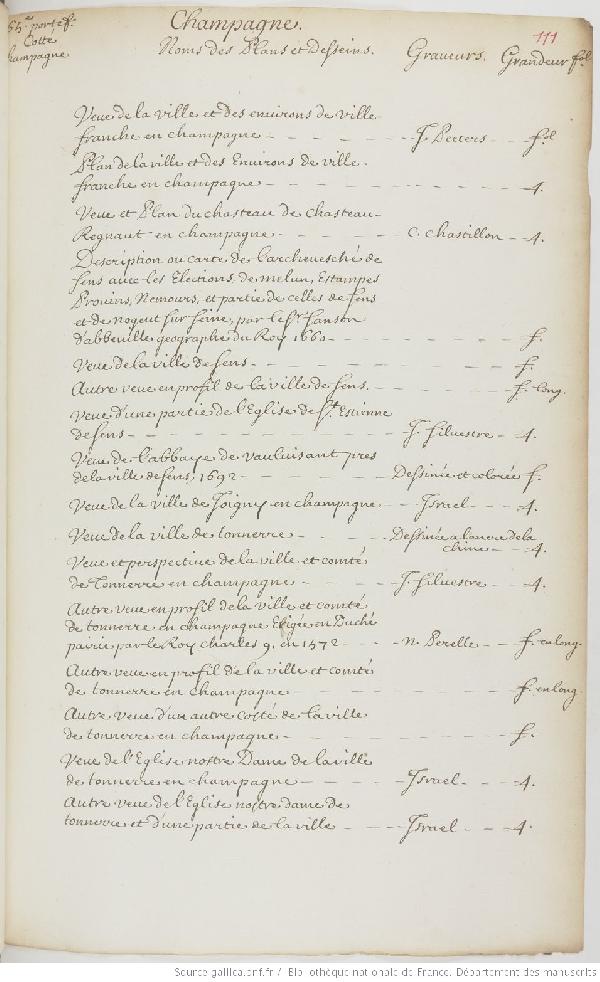 Champagne.
111
Cotté
Champagne
Noms des Plans et Desseins. Graueurs. Grandeur fol.
Veue de la ville et des enuirons de ville
franche en champagne - - - - - J. Peeters - - fol
Plan de la ville et des Enuirons de ville-
franche en champagne - - - - - 4.
Veue et Plan du chasteau de chasteau-
Regnaut en champagne - - - - C. Chastillon - 4.
Description ou carte de larcheuesché de
sens auec les Elections, de melun, Estampes
Prouins, Nemours, et partie de celles de sens
et de nogent sur seine, par le Sr. Sanson
d'abbeuille geographe du Roy 1660 - - - - f.
Veue de la ville de sens - - - - f.
Autre veue en profil de la ville de sens - - - f. long.
Veue d'une partie de l'Eglise de St. Estinne
de sens - - - - - J. Siluestre - 4.
Veue de l'abbaye de vauluisant pres
de la ville de sens, 1692 - - - - Dessinée et colorée f.
Veue de la ville de Joigny en champagne - - Israel - - 4.
Veue de la ville de tonnerre - - - - Dessinée a lancre de la
chine - - - 4.
Veue et perspectiue de la ville et comté
de Tonnerre en champagne - - - - J. Siluestre - - 4.
Autre veue en profil de la ville et comté
de tonnerre en champagne Erigée en Duché
pairie par le Roy charles 9. en 1572 - - - N. Perelle - - f. en long.
Autre veue en profil de la ville et comté
de tonnerre en champagne - - - - f. en long
Autre veue d'un autre costé de la ville
de tonnerre en champagne - - - - f.
Veue de l'Eglise nostre Dame de la ville
de tonnerre en champagne - - - - Israel - - - 4.
Autre veue de l'Eglise nostre dame de
tonnerre et d'une partie de la ville - - - Israel - - - 4.
Source gallica.bnf.fr / Bibliothèque nationale de France. Département des manuscrits